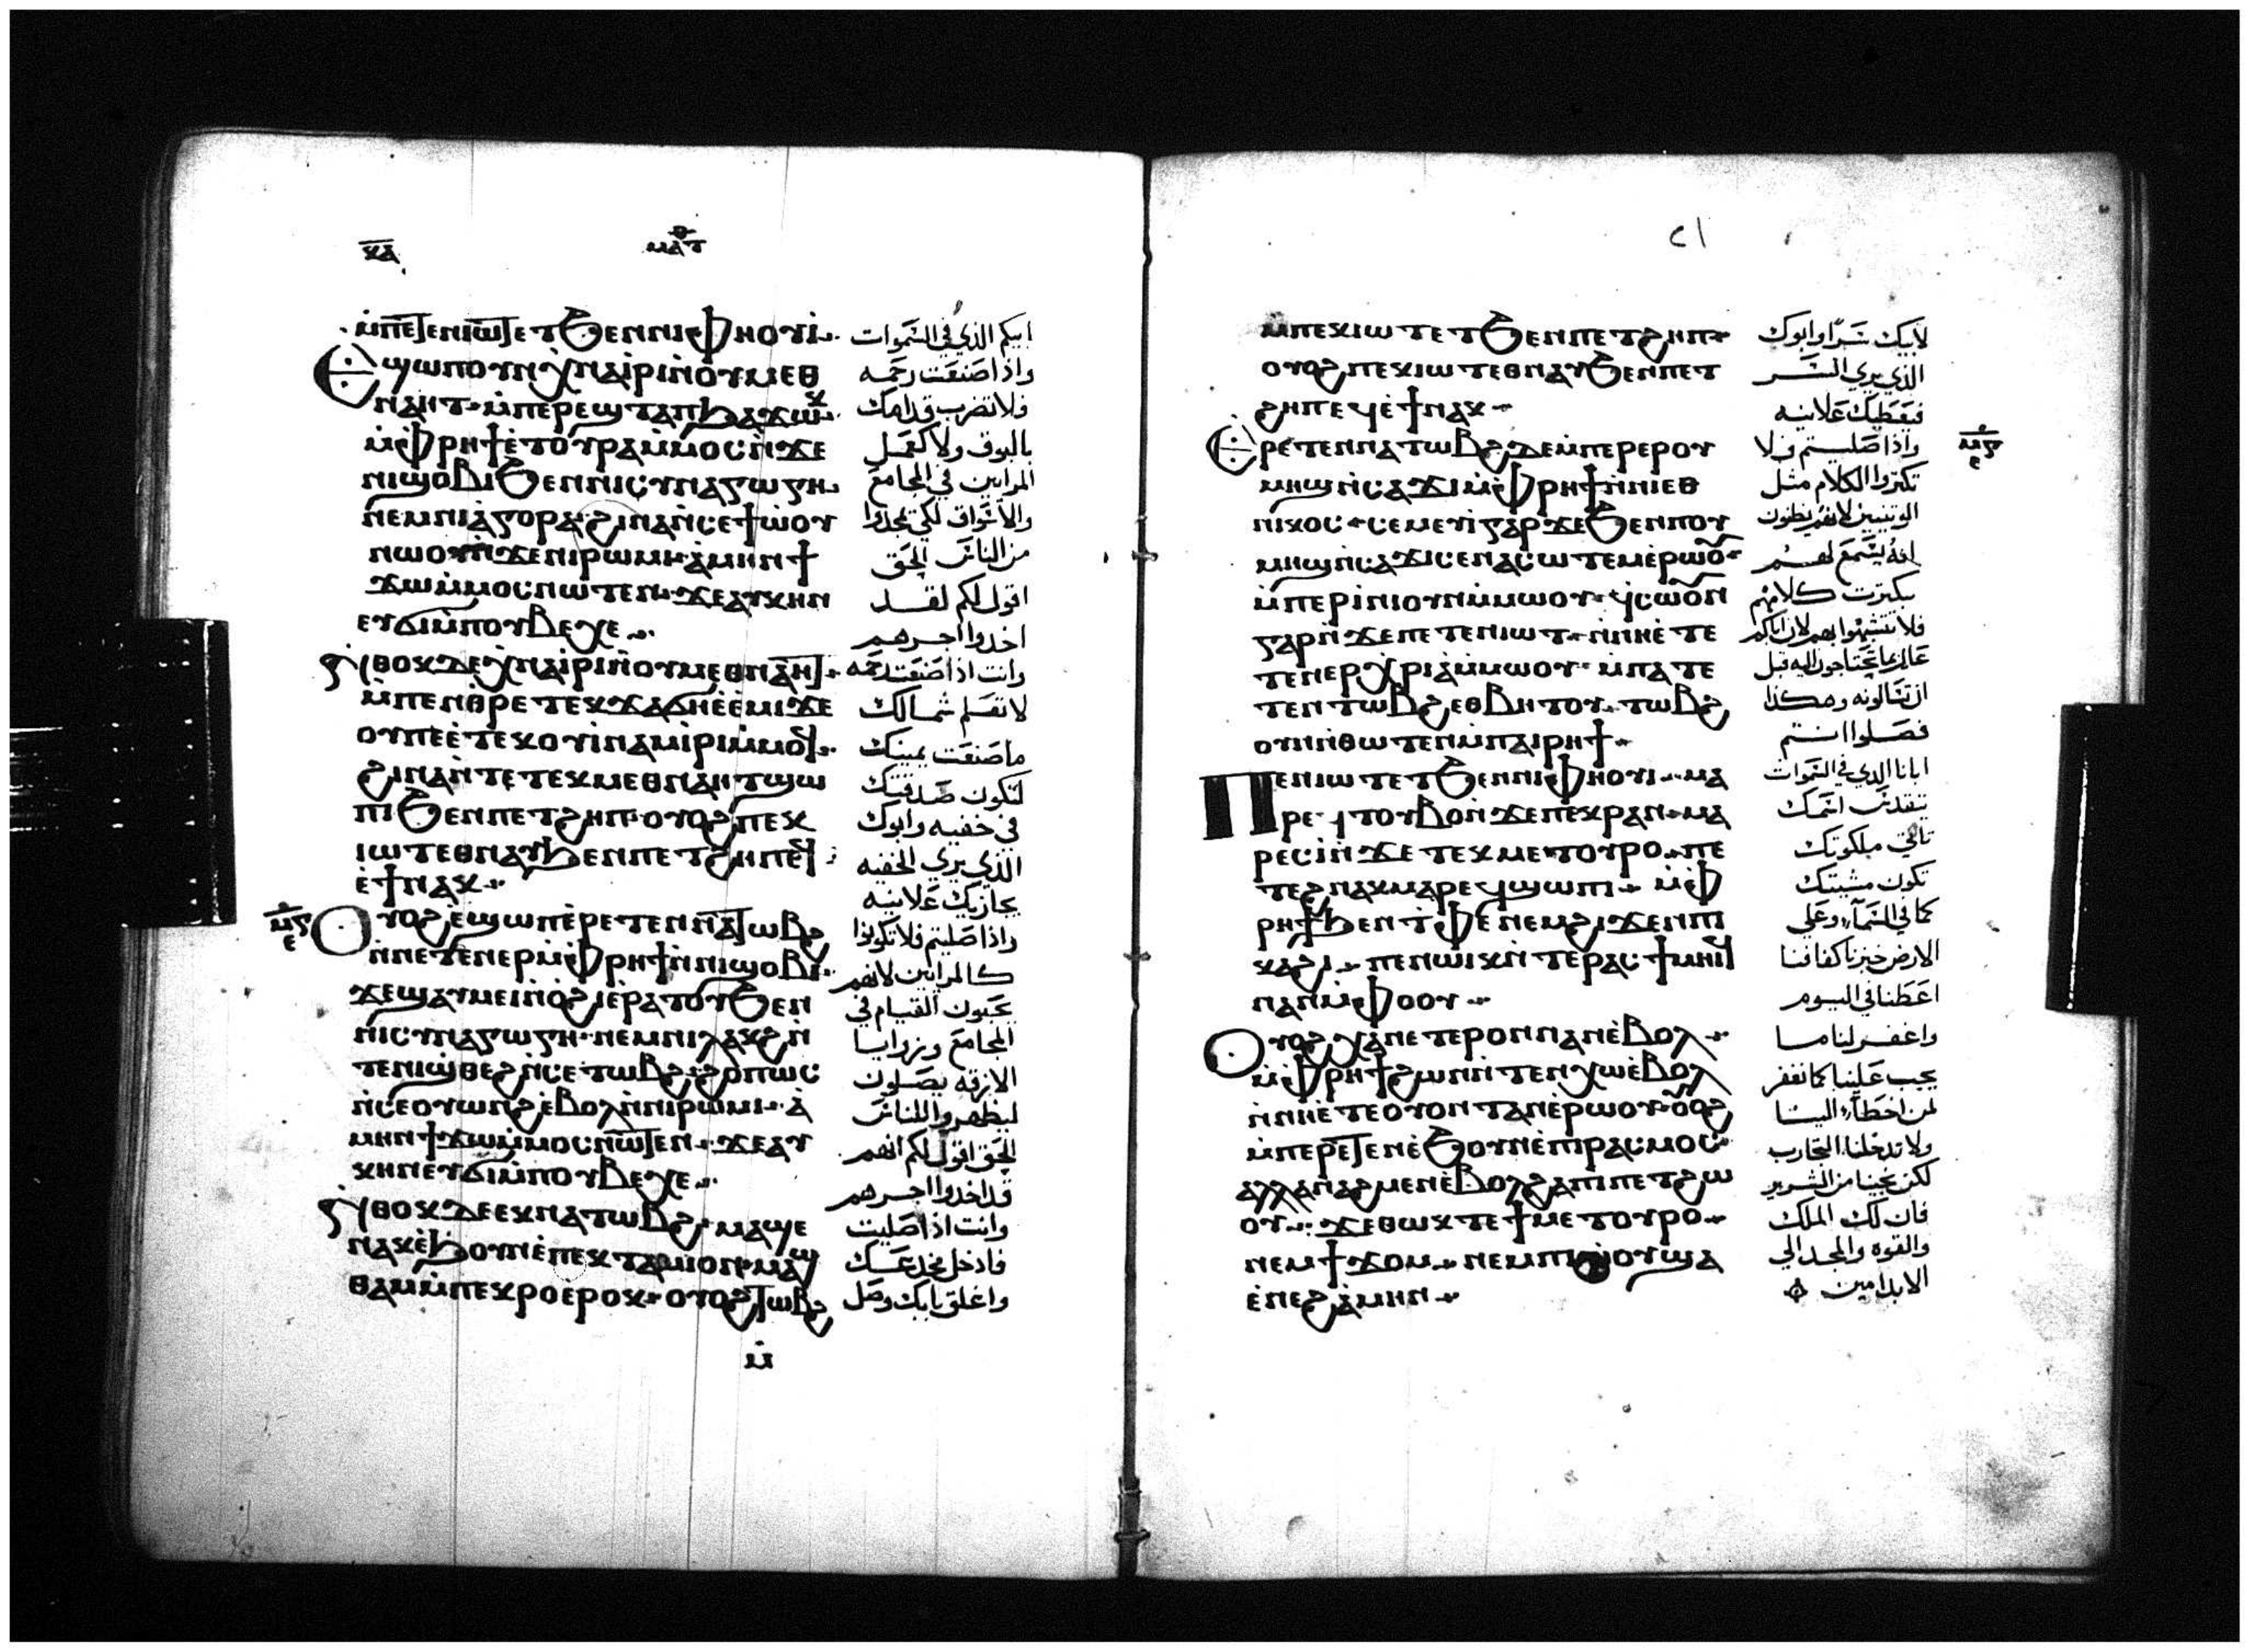 ⲕⲁ
ⲙⲁⲧⲑ
ⲙ̀ⲡⲉⲧⲉⲛⲓⲱⲧ ⲉⲧϧⲉⲛⲛⲓⲫⲏⲟⲩⲓ̀
Ⲉϣⲱⲡ ⲟⲩⲛ ⲭ̀ⲛⲁⲓ̀ⲣⲓ ⲛ̀ⲟⲩⲙⲉⲑ
ⲛⲁⲏⲧ ⲙ̀ⲡⲉⲣⲉϣⲧⲁⲡ ϧⲁϫⲱⲕ
ⲙ̀ⲫⲣⲏϯ ⲉ̀ⲧⲟⲩⲣⲁ ⲙ̀ⲙⲟⲥ ⲛ̀ϫⲉ
ⲛⲓϣⲟⲃⲓ ϧⲉⲛⲛⲓⲥⲩⲛⲁⲅⲱⲅⲏ
ⲛⲉⲙⲛⲓⲁ̀ⲅⲟⲣⲁ ϩⲓⲛⲁ ⲛ̀ⲥⲉϯⲱ̀ⲟⲩ
ⲛⲱⲟⲩ ⲛ̀ϫⲉⲛⲓⲣⲱⲙⲓ ⲁ̀ⲙⲏⲛ ϯ
ϫⲱ ⲙ̀ⲙⲟⲥ ⲛⲱⲧⲉⲛ ϫⲉⲁⲩⲕⲏⲛ
ⲉⲩϭⲓ ⲙ̀ⲡⲟⲩⲃⲉⲭⲉ
Ⲛ̀ⲑⲟⲕ ⲇⲉ ⲭ̀ⲛⲁⲓ̀ⲣⲓ ⲛ̀ⲟⲩⲙⲉⲑⲛⲁⲏⲧ
ⲙ̀ⲡⲉⲛⲑ̀ⲣⲉ ⲧⲉⲕϫⲁϭⲏ ⲉ̀ⲉ̀ⲙⲓ ϫⲉ
ⲟⲩ ⲡⲉ ⲉ̀ⲧⲉⲕⲟⲩⲓ̀ⲛⲁⲙ ⲓ̀ⲣⲓ ⲙ̀ⲙⲟϥ
ϩⲓⲛⲁ ⲛ̀ⲧⲉ ⲧⲉⲕⲙⲉⲑⲛⲁⲏⲧ ϣⲱ
ⲡⲓ ϧⲉⲛⲡⲉⲧϩⲏⲡ ⲟⲩⲟϩ ⲡⲉⲕ
ⲓⲱⲧ ⲉⲑⲛⲁⲩ ϧⲉⲛⲡⲉⲧϩⲏⲡ ⲉϥ
ⲉ̀ϯ ⲛⲁⲕ
Ⲟⲩⲟϩ ⲉ̀ϣⲱⲡ ⲉ̀ⲣⲉⲧⲉⲛⲛⲁⲧⲱⲃϩ
ⲛ̀ⲛⲉⲧⲉⲛⲉⲣ ⲙ̀ⲫⲣⲏϯ ⲛ̀ⲛⲓϣⲟⲃⲓ
ϫⲉϣⲁⲩⲙⲉⲓ ⲛ̀ⲟ̀ϩⲓ ⲉ̀ⲣⲁⲧⲟⲩ ϧⲉⲛ
ⲛⲓⲥⲩⲛⲁⲅⲱⲅⲏ ⲛⲉⲙⲛⲓⲗⲁⲕϩ ⲛ̀
ⲧⲉⲛⲓϣⲑⲉϩ ⲛ̀ⲥⲉⲧⲱⲃϩ ϩⲟⲡⲱⲥ
ⲛ̀ⲥⲉⲟⲩⲱⲛϩ ⲉ̀ⲃⲟⲗ ⲛ̀ⲛⲓⲣⲱⲙⲓ ⲁ̀
ⲙⲏⲛ ϯϫⲱ ⲙ̀ⲙⲟⲥ ⲛⲱⲧⲉⲛ ϫⲉⲁⲩ
ⲕⲏⲛ ⲉⲩϭⲓ ⲙ̀ⲡⲟⲩⲃⲉⲭⲉ
Ⲛ̀ⲑⲟⲕ ⲇⲉ ⲉⲕⲛⲁⲧⲱⲃϩ ⲙⲁϣⲉ
ⲛⲁⲕ ⲉ̀ϧⲟⲩⲛ ⲉ̀ⲡⲉⲕⲧⲁⲙⲓⲟⲛ ⲙⲁϣ
ⲑⲁⲙ ⲙ̀ⲡⲉⲕⲣⲟ ⲉⲣⲟⲕ ⲟⲩⲟϩ ⲧⲱⲃϩ
ⲙ̀
ابيكم الذي في السموات
واذا صنعت رحمه
فلا تضرب قدامك
بالبوق ولا كعمل
المرايين في المجامع
والاسواق لكي يمجدوا
من الناس الحق
اقول لكم لقد
اخدوا اجرهم
وانت اذا صنعت رحمه
لا تعلم شمالك
ما صنعت يمينك
لتكون صدقتك
في خفيه وابوك
الذي يري الخفيه
يجازيك علانيه
واذا صليتم فلا تكونوا
كالمرايين لانهم
يحبون القيام في
المجامع وزوايا
الازقه يصلون
ليظهروا للناس
الحق اقول لكم انهم
قد اخدوا اجرهم
وانت اذا صليت
فادخل مخدعك
واغلق بابك وصل
٢١
ⲙ̀ⲡⲉⲕⲓⲱⲧ ⲉⲧϧⲉⲛⲡⲉⲧϩⲏⲡ
ⲟⲩⲟϩ ⲡⲉⲕⲓⲱⲧ ⲉⲑⲛⲁⲩ ϧⲉⲛⲡⲉⲧ
ϩⲏⲡ ⲉϥⲉ̀ϯ ⲛⲁⲕ
Ⲉⲣⲉⲧⲉⲛⲛⲁⲧⲱⲃϩ ⲇⲉ ⲙ̀ⲡⲉⲣⲉⲣⲟⲩ
ⲙⲏϣ ⲛ̀ⲥⲁϫⲓ ⲙ̀ⲫⲣⲏϯ ⲛ̀ⲛⲓⲉⲑ
ⲛⲓⲕⲟⲥ ⲥⲉⲙⲉⲩⲓ̀ ⲅⲁⲣ ϫⲉϧⲉⲛⲡⲟⲩ
ⲙⲏϣ ⲛ̀ⲥⲁϫⲓ ⲥⲉⲛⲁⲥⲱⲧⲉⲙ ⲉ̀ⲣⲱⲟⲩ
ⲙ̀ⲡⲉⲣⲓ̀ⲛⲓ ⲟⲩⲛ ⲙ̀ⲙⲱⲟⲩ ϥⲥⲱⲟⲩⲛ
ⲅⲁⲣ ⲛ̀ϫⲉⲡⲉⲧⲉⲛⲓⲱⲧ ⲛ̀ⲛⲏⲉ̀ⲧⲉ
ⲧⲉⲛⲉⲣⲭⲣⲓⲁ̀ ⲙ̀ⲙⲱⲟⲩ ⲙ̀ⲡⲁⲧⲉ
ⲧⲉⲛⲧⲱⲃϩ ⲉⲑⲃⲏⲧⲟⲩ ⲧⲱⲃϩ
ⲟⲩⲛ ⲛ̀ⲑⲱⲧⲉⲛ ⲙ̀ⲡⲁⲓⲣⲏϯ
Ⲡⲉⲛⲓⲱⲧ ⲉⲧϧⲉⲛⲛⲓⲫⲏⲟⲩⲓ ⲙⲁ
ⲣⲉϥⲧⲟⲩⲃⲟ ⲛ̀ϫⲉⲡⲉⲕⲣⲁⲛ ⲙⲁ
ⲣⲉⲥⲓ̀ ⲛ̀ϫⲉⲧⲉⲕⲙⲉⲧⲟⲩⲣⲟ ⲡⲉ
ⲧⲉϩⲛⲁⲕ ⲙⲁⲣⲉϥϣⲱⲡⲓ ⲙ̀ⲫ
ⲣⲏϯ ϧⲉⲛⲧ̀ⲫⲉ ⲛⲉⲙϩⲓϫⲉⲛⲡⲓ
ⲕⲁϩⲓ ⲡⲉⲛⲱⲓⲕ ⲛ̀ⲧⲉⲣⲁⲥϯ ⲙⲏⲓϥ
ⲛⲁⲛ ⲙ̀ⲫⲟⲟⲩ
Ⲟⲩⲟϩ ⲭⲁ ⲛⲉⲧⲉⲣⲟⲛ ⲛⲁⲛ ⲉ̀ⲃⲟⲗ
ⲙ̀ⲫⲣⲏϯ ϩⲱⲛ ⲛ̀ⲧⲉⲛⲭⲱ ⲉ̀ⲃⲟⲗ
ⲛ̀ⲛⲏⲉ̀ⲧⲉⲟⲩⲟⲛⲧⲁⲛ ⲉ̀ⲣⲱⲟⲩ ⲟⲩⲟϩ
ⲙ̀ⲡⲉⲣⲧⲉⲛ ⲉ̀ϧⲟⲩⲛ ⲉ̀ⲡⲓⲣⲁⲥⲙⲟⲥ
ⲁⲗⲗⲁ ⲛⲁϩⲙⲉⲛ ⲉ̀ⲃⲟⲗϩⲁⲡⲓⲡⲉⲧϩⲱ
ⲟⲩ ϫⲉⲑⲱⲕ ⲧⲉ ϯⲙⲉⲧⲟⲩⲣⲟ
ⲛⲉⲙϯϫⲟⲙ ⲛⲉⲙⲡⲓⲱ̀ⲟⲩ ϣⲁ
ⲉ̀ⲛⲉϩ ⲁ̀ⲙⲏⲛ
لابيك سرا وابوك
الذي يري السر
فيعطيك علانيه
واذا صليتم فلا
تكثروا الكلام مثل
الوتنيين لانهم يظنون
انه يسمع لهم
بكثرت كلامهم
فلا تتشبهوا بهم لان اباكم
عالم بما تحتاجون اليه قبل
ان تسالونه وهكذا
فصلوا انتم
ابانا الذي في السموات
يتقدس اسمك
تاتي ملكوتك
تكون مشيتك
كما في السماء وعلي
الارض خبزنا كفافنا
اعطنا في اليوم
واغفر لنا ما
يجب علينا كما نغفر
لمن اخطاء الينا
ولا تدخلنا التجارب
لكن نجينا من الشرير
فان لك الملك
والقوه والمجد الي
الابد امين